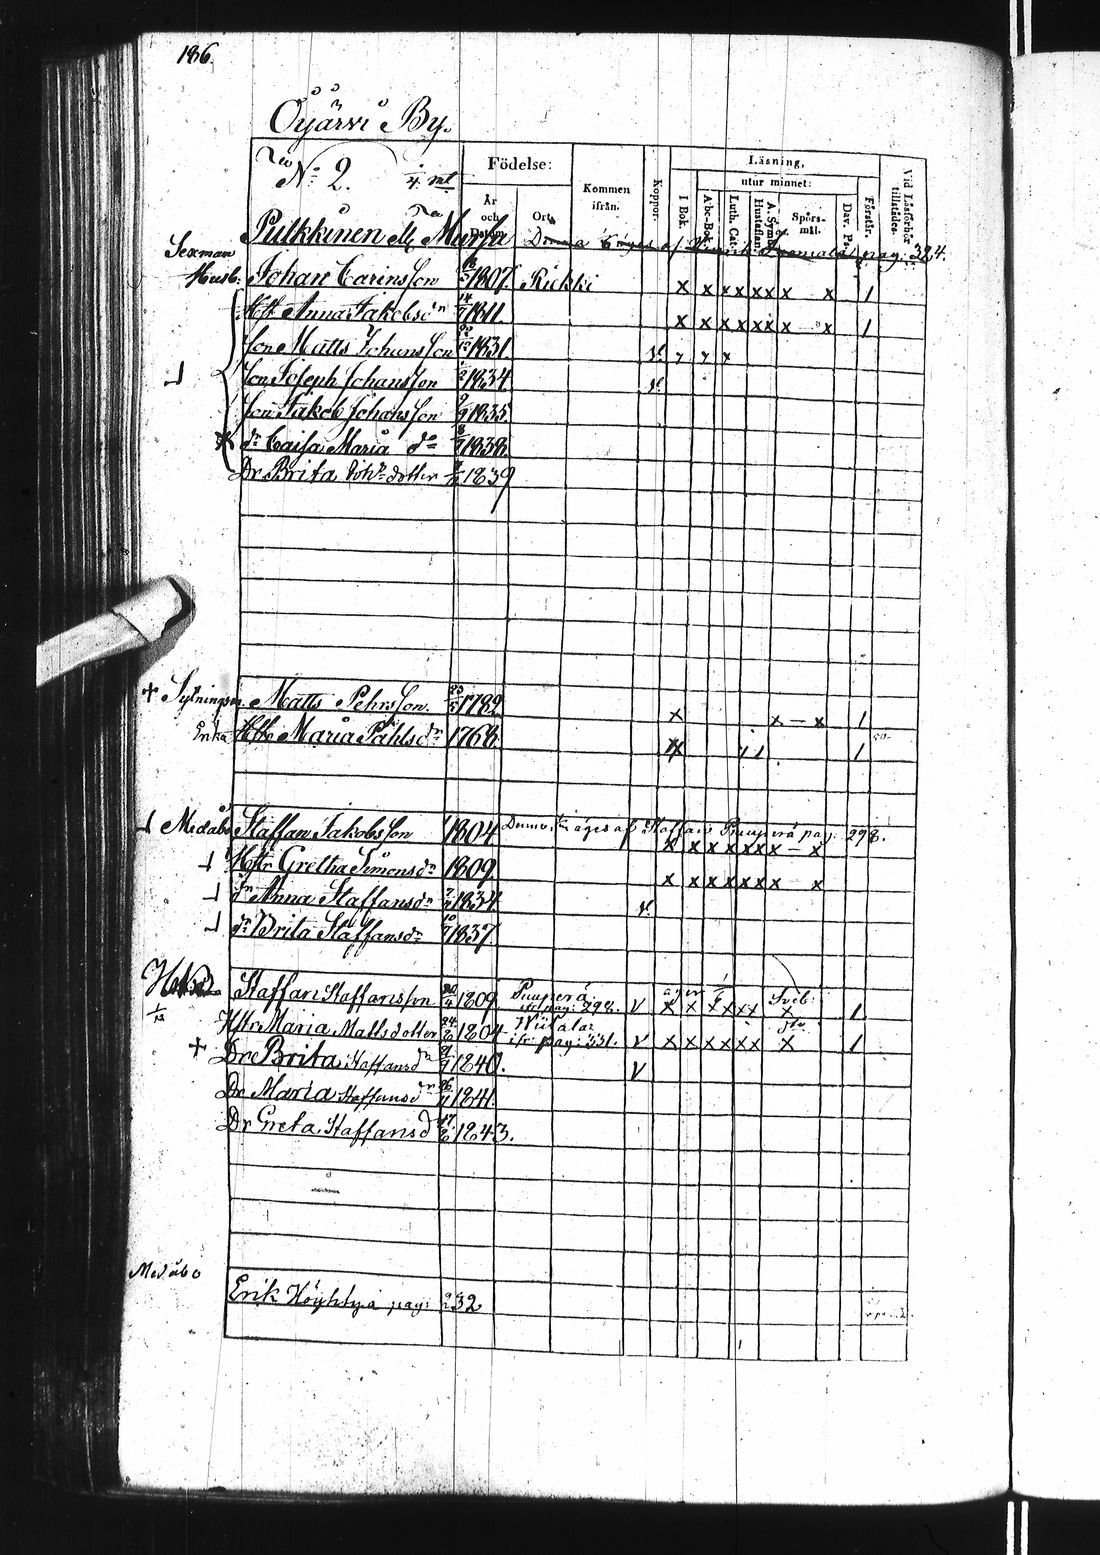 186.
Oijärvi By.
No 2. 1/4 mtl
Födelse:
År och Datum.
Ort.
Kommen ifrån.
Koppor.
Läsning,
utur minnet:
I Bok.
Abc-Bok.
Luth. Cat.
Hustaflan.
A. Symb.
Spörsmål.
Dav. Ps.
Förstår.
Vid Läsförhör tillstädes.
Pulkkinen Murha Denna äges af pag: 324.
Sexman
Husb: Johan Carinsson 1807. Kiekki x x x x x x x x 1
Hst Anna Jakobsdr 14 1811. x x x x x x x x 1
Son Matts Johansson 1831.
Son Joseph Johansson 1834
Son Jakob Johansson 1835.
dr Caisa Maria do 8 1838.
Dr Brita Johsdotter 1839
+ Sytningsm. Matts Pehrsson 23/5 1782 x x - x 1
Enka Hst Maria Påhlsdr 1768. 1
Medåbo Staffan Jakobsson 1804 Denna äges af Staffan Puuperä pag: 298. x x x x x x x - x
Hstr Gretha Simonsdr 1809. x x x x x x x x
dr Anna Staffansdr 1834
dr Brita Staffansdr 10 1837
Staffan Staffansson 1809 Puuperä ifr. pag: 298. v äger Sveb: x x x x x x x 1
Hstr Maria Mattsdotter 24 1804 ifr pag: 331. v x x x x x x x 1
+ Dr Brita Staffansdr 1840. v
Dr Maria Staffansdr 26 1841.
Dr Greta Staffansd 17 1843.
Medåbo
Erik Höyhtyä pag: 232